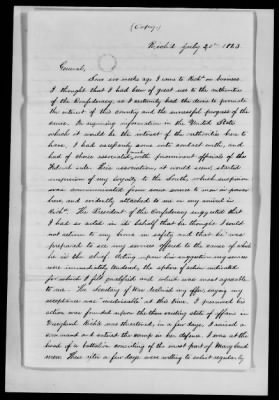 (Copy)
Rich'd July 20th 1863
General,
Some six weeks ago I came to Rich'd on business.
I thought that I had been of great use to the authorities
of the Confederacy, as I certainly had the desire to promote
the interest of this country and the successful progress of the
cause. In acquiring information in the United States
which it would be the interest of the authorities here to
have, I had necessarily come into contact with, and
had of choice associated with prominent officials of the
Federal side. This association it would seem started
suspicion of my loyalty to the South, which suspicion
was communicated from some source to men in power
here, and evidently attached to me on my arrival in
Rich'd. The President of the Confederacy suggested that
I had so acted in its behalf that he thought I could
not return to my home in safety and that he was
prepared to see my services offered to the cause of which
he is the chief. Acting upon his suggestion my services
were immediately tendered, the sphere of action indicated
for which I felt qualified and which was most agreeable
to me. The Secretary of War declined my offer, saying my
acceptance was "inadvisable" at this time. I presumed his
action was founded upon the then existing state of affairs in
Maryland. Rich'd was threatened, in a few days, I raised a
command and entered the camp in her defence. I was at the
head of a battalion consisting of the most part of Maryland
men. These after a few days were willing to enlist regularly